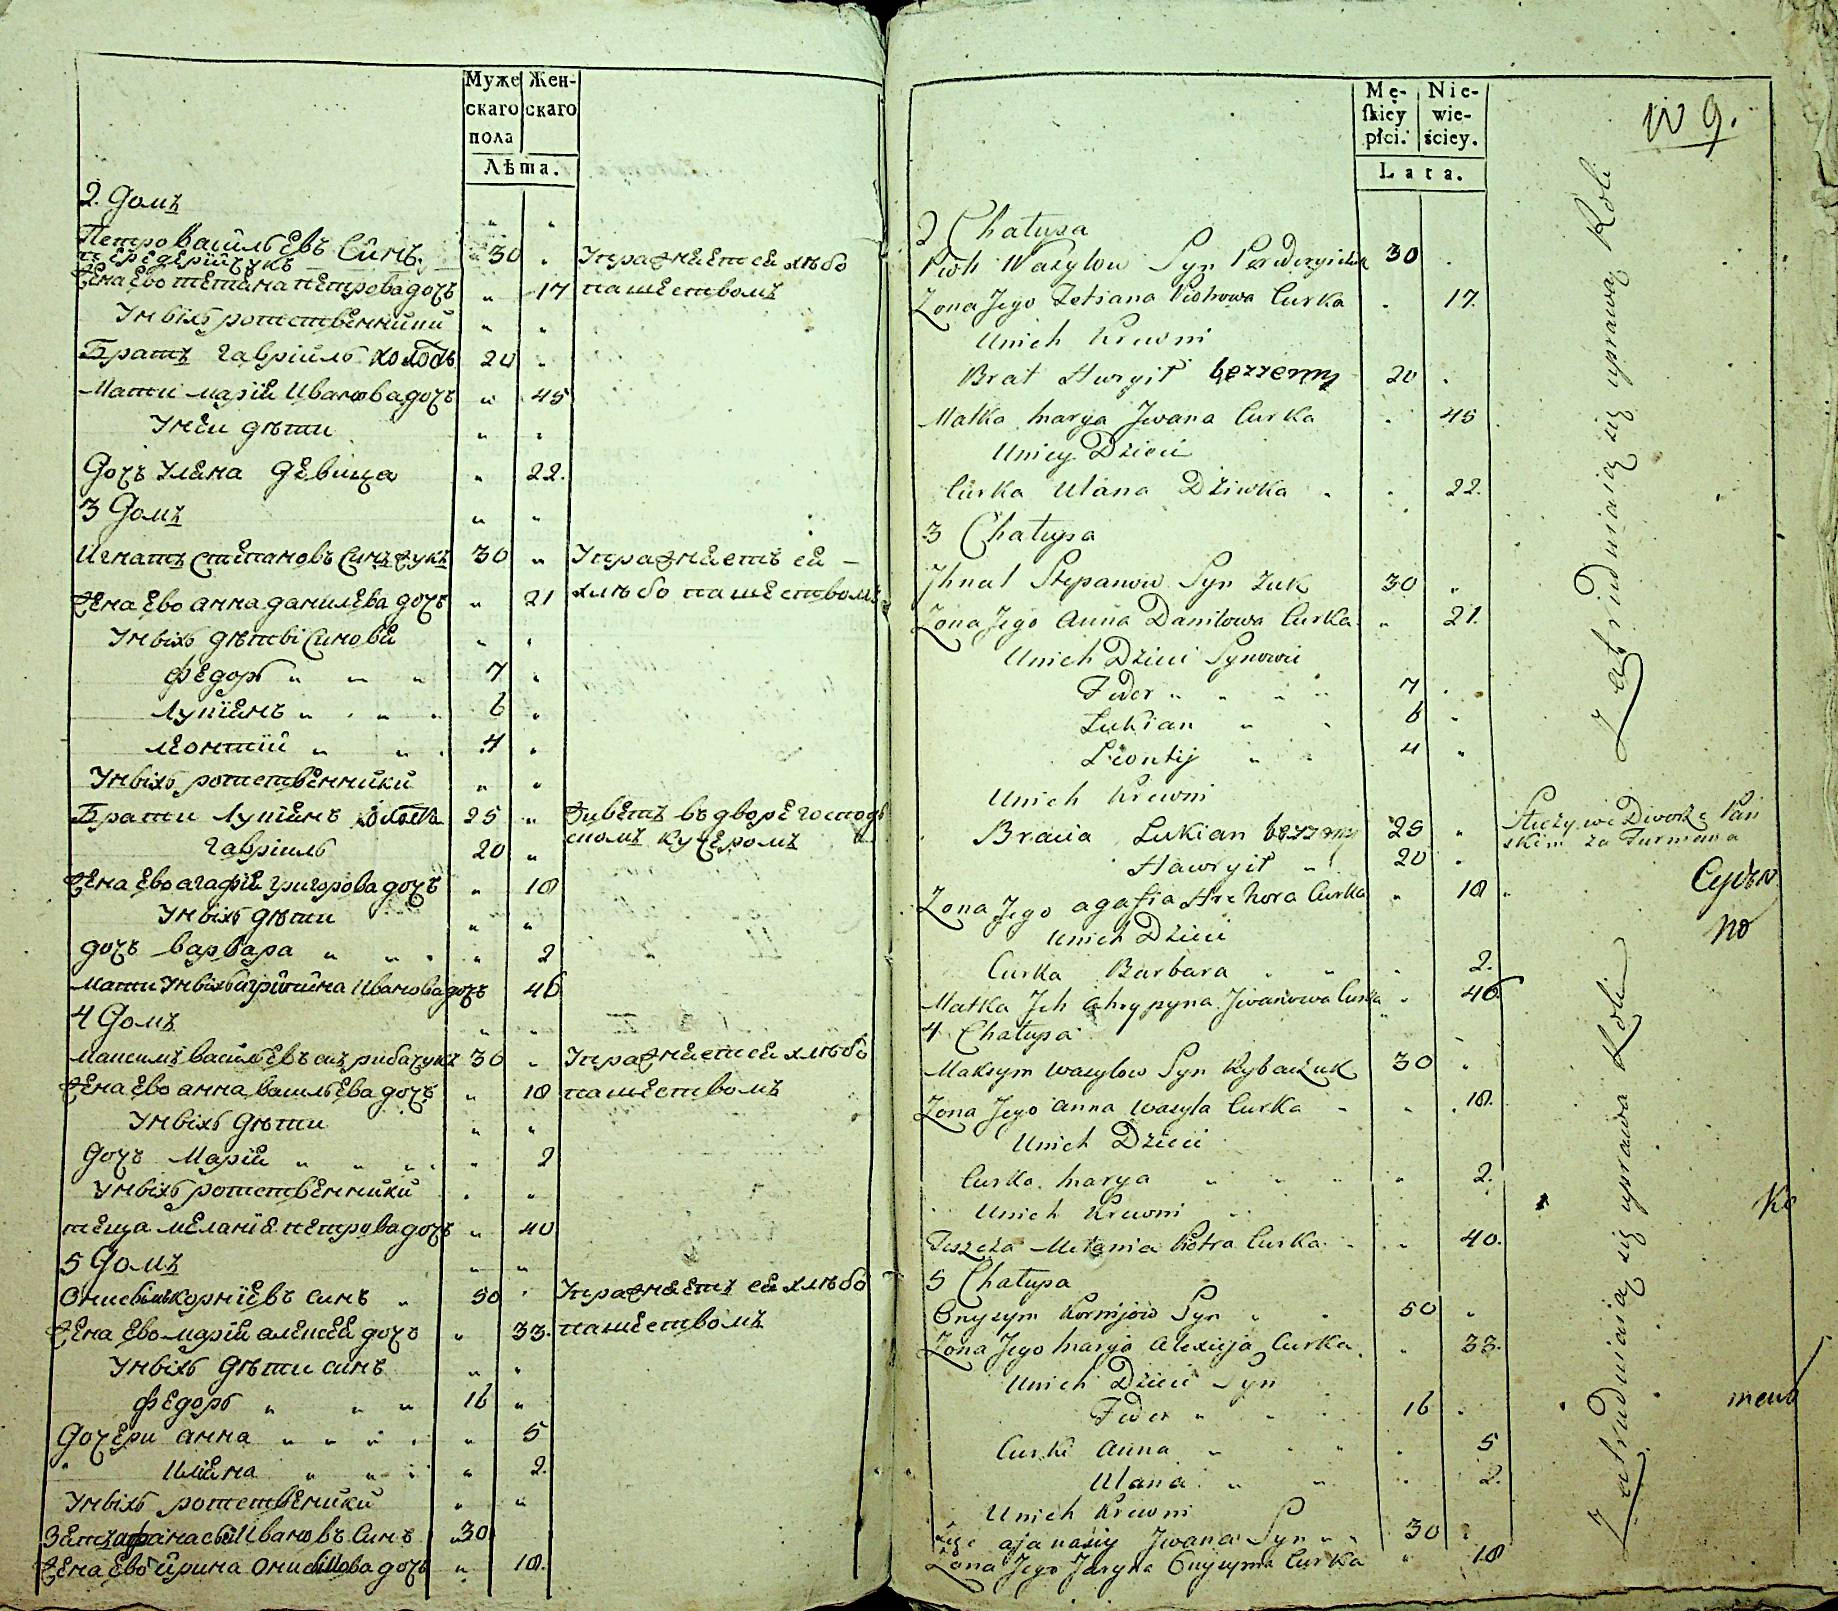 Муже
скаго
пола
Жен-
скаго
Лѣта.
2. Домъ
Петро Васильевъ Синъ 30
Передерійчукъ
Упражняется хлѣбо
пашествомъ
Жена Ево тетяна петрова дочъ 17
Унвіхъ ротственники
Братъ гавріилъ холостъ 20
Мати марія Иванова дочъ 45
Унеи дѣти
Дочъ Уляна Девица 22.
3 Домъ
Игнатъ Степановъ Синъ Жукъ 30
Упражняетъ ся
хлѣбо пашествомъ
Жена Ево анна данилева дочъ 21
Унвіхъ дѣтві Синовя
федоръ 7
Лукіянъ 6
леонтій 4
Унвіхъ ротственники
Брати Лукіянъ холостъ 25
Живетъ въ дворе господ
скомъ кучеромъ
гавріилъ 20
Жена Ево агафія григорова дочъ 18
Унвіхъ дѣти
дочъ варвара 2
Мати Унвіхъ Иванова дочъ 46
4 Домъ
Максимъ васильевъ синъ рибачукъ 30
Упражняется хлѣбо
пашествомъ
Жена Ево анна васильева дочъ 18
Унвіхъ Дѣти
Дочъ Марія 2
Унвіхъ ротственники
теща меланія петрова дочъ 40
5 Домъ
Корніевъ синъ 50
Упражняетъ ся хлѣбо
пашествомъ
Жена Ево марія алексея дочъ 33.
Унвіхъ Дѣти синъ
федоръ 16
Дочери анна 5
Уляна 2.
Унвіхъ ротственики
Зять афанасей Ивановъ Синъ 30
Жена Ево ирина дочъ 18.
Mę-
skiey
płci.
Nie-
wie-
ściey.
Lata.
N 9.
2 Chałupa
Piotr Wasylow Syn Perederyiczuk 30
Zona Jego Tetiana Piotrowa Curka 17.
Unich Krewni
Brat Hawryił bezzenny 20
Matka Marya Jwana Curka 45
Uniey Dzieci
Curka Ulana Dziwka 22.
3 Chałupa
Jhnat Stepanow Syn Żuk 30
Zona Jego Anna Daniłowa Curka 21.
Unich Dzieci Synowie
Feder 7
Lukian 6
Leontij 4
Unich Krewni
Bracia Lukian bezzenny 25
Służy we Dworze Pań
skim za Furmana
Hawryił 20
Zona Jego agafia Hrehora Curka 18
Unich Dzieci
Curka Barbara 2.
Matka Jch ahrypyna Jwanowa Curka 46.
4 Chałupa
Maksym Wasylow Syn Rybaczuk 30
Zona Jego anna Wasyla Curka 18.
Unich Dzieci
Curka Marya 2.
Unich Krewni
Teszcza Melania Piotra Curka 40.
5 Chałupa
Onysym Kornijow Syn 50
Zona Jego Marya Alexieja Curka 33.
Unich Dzieci Syn
Feder 16
Curki Anna 5
Ulana 2.
Unich Krewni
afanasiy Jwana Syn 30
Zona Jego Jaryna Onysyma Curka 18
Zatrudniaią się uprawą Roli
Zatrudniaią się uprawą Roli